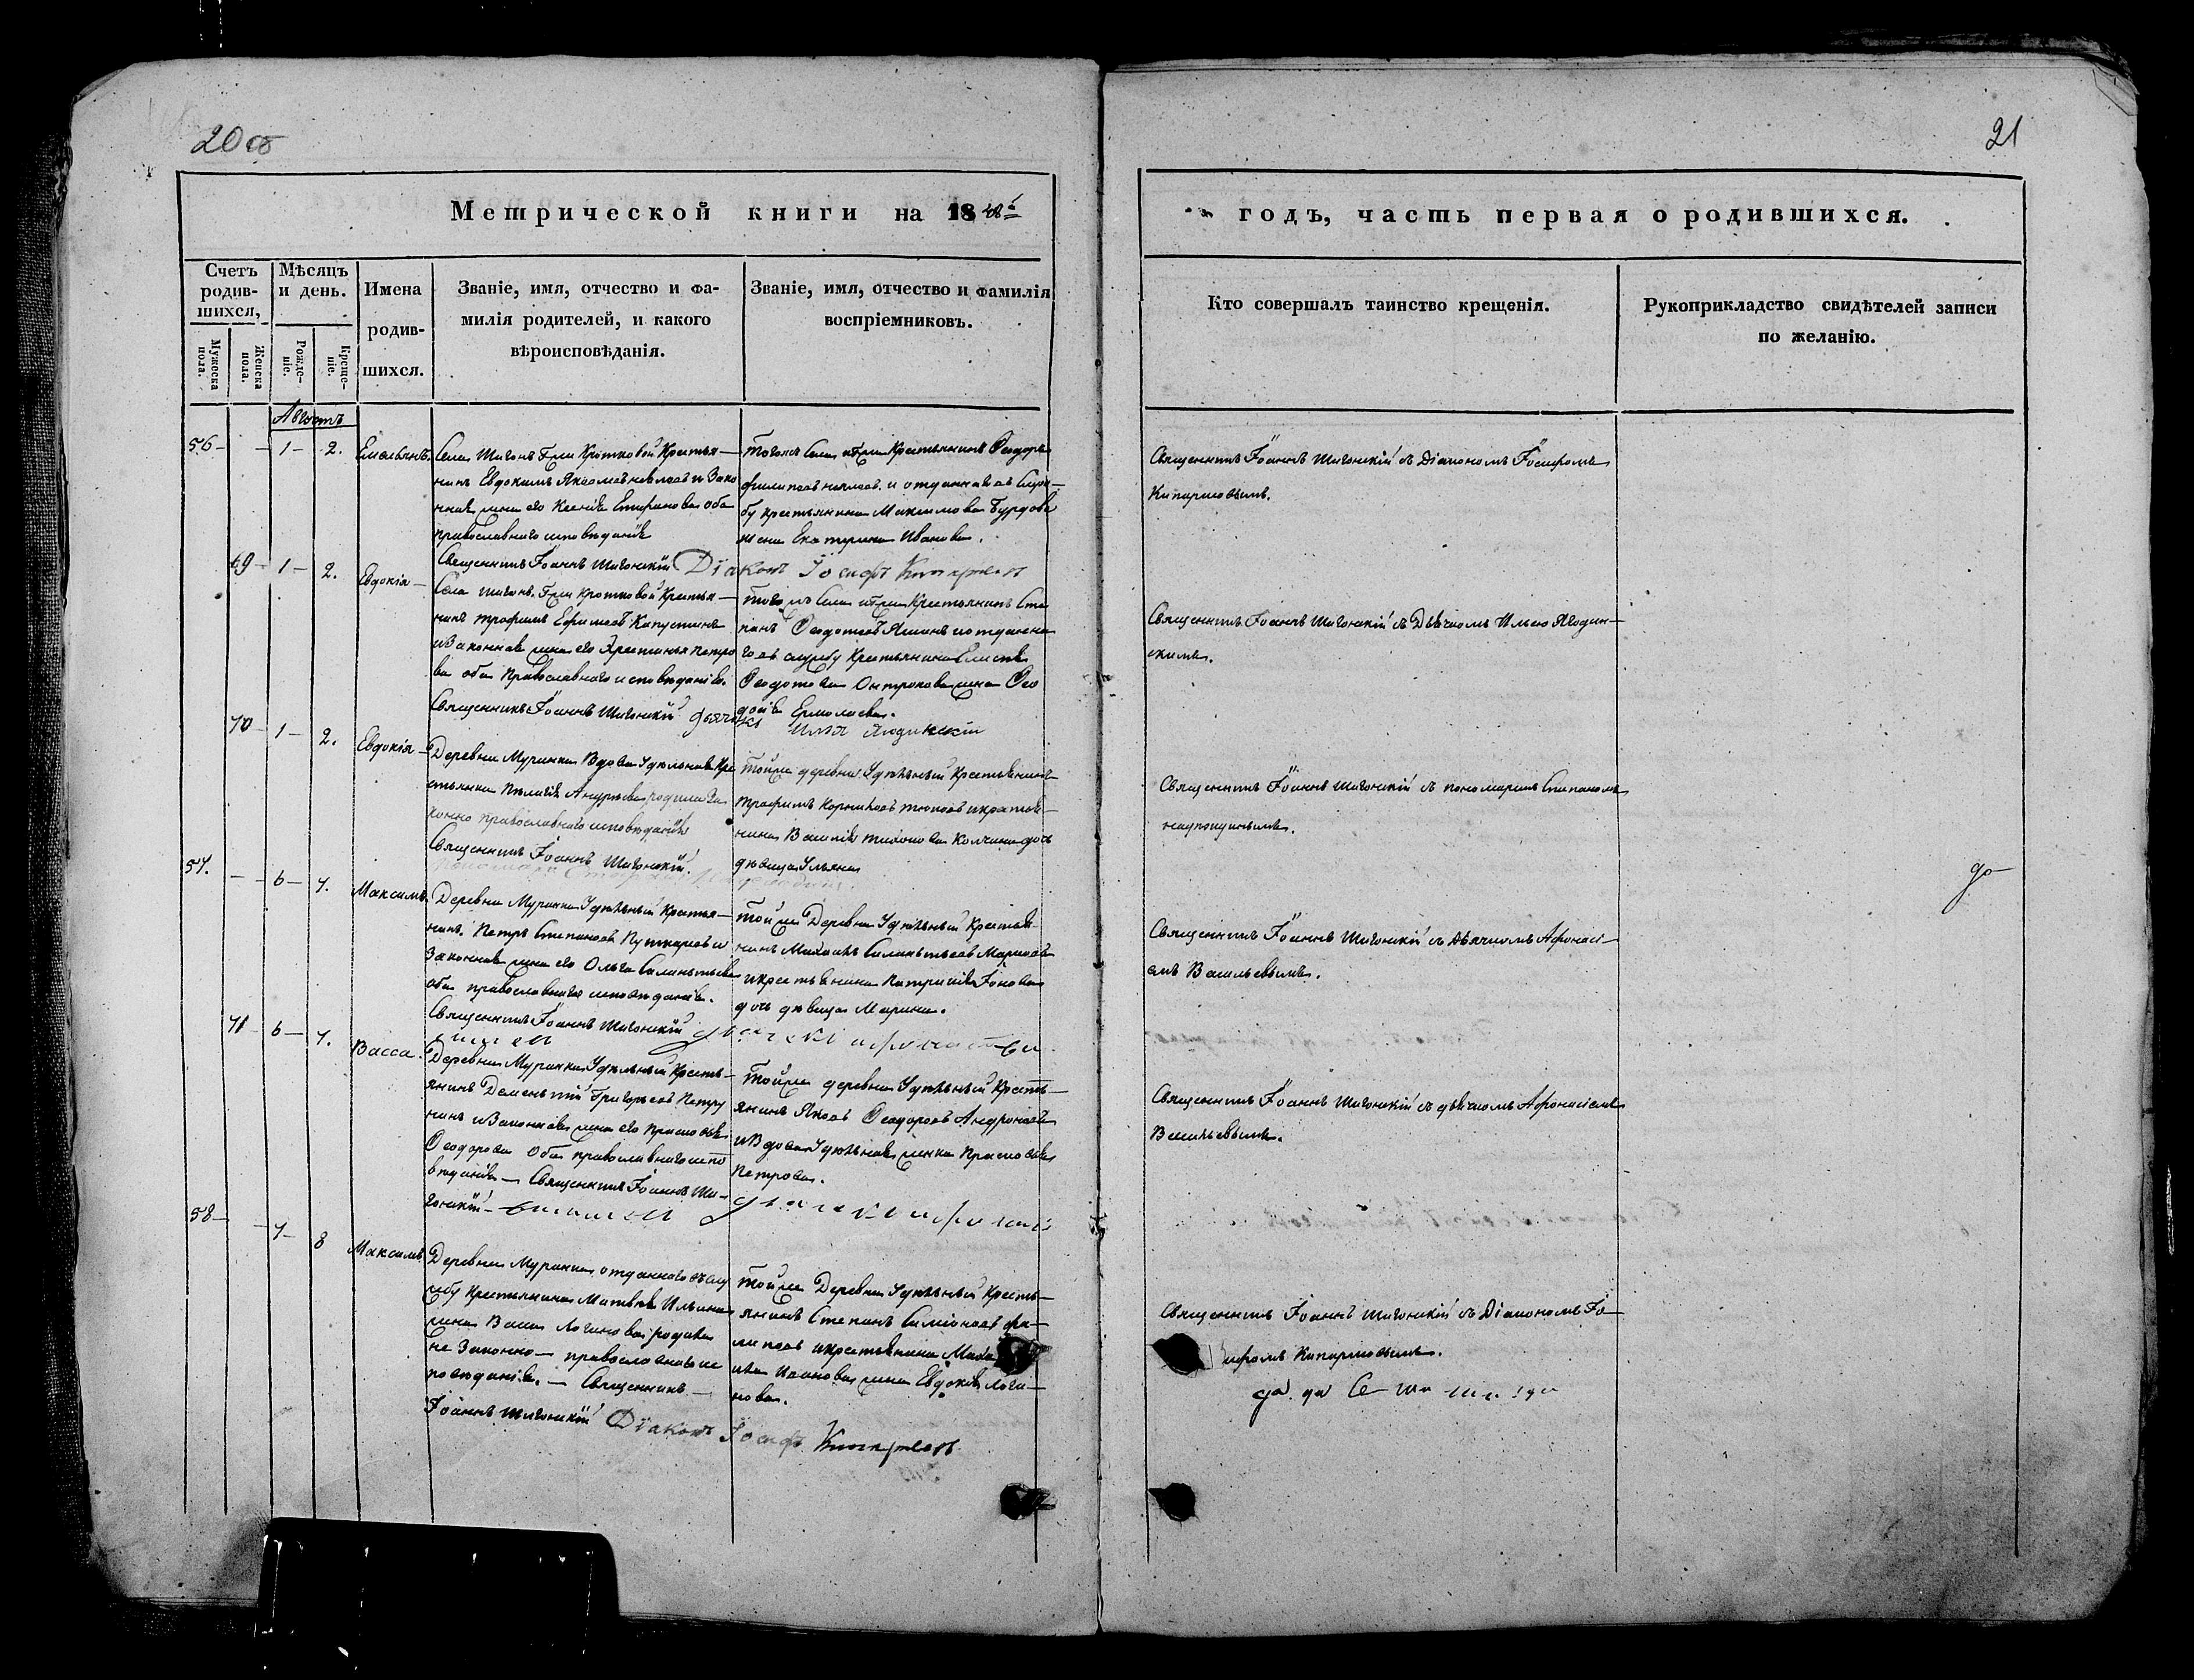 20 об
21
Метрической книги на 1848й
годъ, часть первая о родившихся.
Счетъ родив-
шихся,
Мужеска пола.
Женска пола.
Мѣсяцъ
и день.
Рожде-
ніе.
Креще-
ніе.
Имена
родив-
шихся.
Званіе, имя, отчество и фа-
милія родителей, и какого
вѣроисповѣданія.
Званіе, имя, отчество и фамилія
воспріемниковъ.
Кто совершалъ таинство крещенія.
Рукоприкладство свидѣтелей записи
по желанію.
Августъ
56 — — 1 — 2.
Емельянъ.
Села Шигонъ Г-жи Кротковой Крестья-
нинъ Евдокимъ Яковлевъ и Зако
нная жена его Ксенія Стефанова оба
православнаго исповѣданія
Священникъ Іоаннъ Шигонскій Діаконъ Іосифъ Кипарисовъ
тогожъ Села и Г-жи Крестьянинъ Ѳеодоръ
Филиповъ и отданнаго въ служ-
бу крестьянина Максимова Бурдова
жена Екатерина Иванова.
Священникъ Іоаннъ Шигонскій съ Діакономъ Іосифомъ
Кипарисовымъ.
69 — 1 — 2.
Евдокія —
Села Шигонъ Г-жи Кротковой Крестья-
нинъ Трофимъ Ефимовъ Капустинъ
и Законная жена его Христинья Петро
ва оба Православнаго исповѣданія.
Священникъ Іоаннъ Шигонскій дьячокъ
Илья Ягодинскій
тогожъ Села и Г-жи Крестьянинъ Сте
панъ Ѳедотовъ и отданна
го въ службу Крестьянина
Ѳедотова жена Ѳео
досія Ермолаева.
Священникъ Іоаннъ Шигонскій съ Дьячкомъ Ильею Ягодин-
скимъ.
70 — 1 — 2.
Евдокія —
Деревни Муранки Вдова Удѣльная Кре
стьянка Пелагія Андреева родила За
конно православнаго исповѣданія
Священникъ Іоаннъ Шигонскій.
Тойже деревни Удѣльный Крестьянинъ
Трофимъ Корниловъ и крестья-
нина Василія Тихонова Колчина дочь
дѣвица Ульяна
Священникъ Іоаннъ Шигонскій съ пономаремъ Степаномъ
57. — — 6 — 7.
Максимъ.
Деревни Муранки Удѣльный Крестья-
нинъ Петръ Степановъ Пушкаревъ и
Законная жена его Ольга Силантьева
оба православнаго исповѣданія.
Священникъ Іоаннъ Шигонскій
Тойже Деревни Удѣльный Крестья-
нинъ Михаилъ Силантьевъ Мариновъ
и крестьянина Патрикія Іонова
дочь дѣвица Марина.
Священникъ Іоаннъ Шигонскій съ Дьячкомъ Афонасі-
емъ Васильевымъ.
до
71 — 6 — 7.
Васса.
Деревни Муранки Удѣльный Кресть-
янинъ Дементій Григорьевъ Петру
нинъ и Законная жена его Прасковья
Ѳеодорова Оба православнаго испо
вѣданія — Священникъ Іоаннъ Ши-
гонскій —
Тойже деревни Удѣльный Кресть-
янинъ Яковъ Ѳеодоровъ Андроновъ
и Вдова Удѣльная женка Прасковья
Петрова.
Священникъ Іоаннъ Шигонскій съ дьячкомъ Афонасіемъ
Васильевымъ.
58 — — 7 — 8
Максимъ
Деревни Муранки отданнаго въ слу
жбу Крестьянина Матвѣя Ильина
жена Васса Логинова родила
не Законно — православнаго ис
повѣданія. — Священникъ —
Іоаннъ Шигонскій Діаконъ Іосифъ Кипарисовъ
Тойже Деревни Удѣльный Кресть-
янинъ Степанъ Симіоновъ Фи-
липовъ и крестьянина
Иванова жена Евдокія Логи-
нова.
Священникъ Іоаннъ Шигонскій съ Діакономъ Іо-
сифомъ Кипарисовымъ.